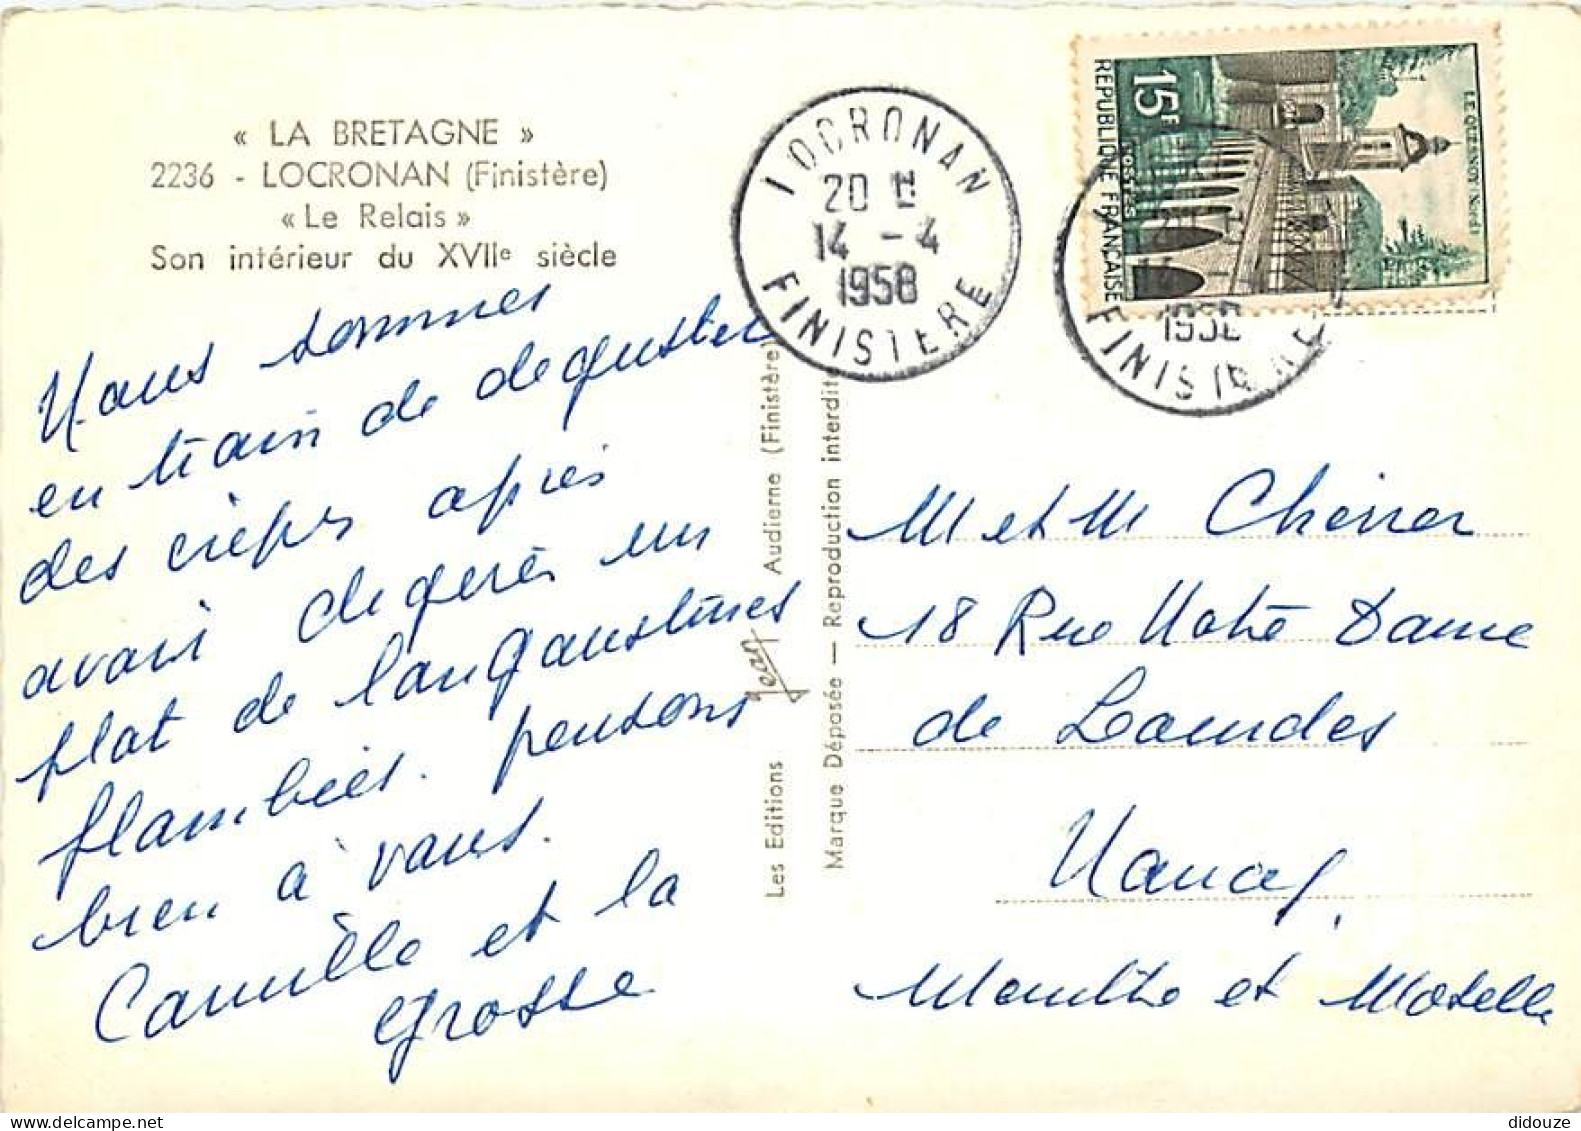 « LA BRETAGNE »
2236 - LOCRONAN (Finistère)
« Le Relais »
Son intérieur du XVIIe siècle
Nous sommes
en train de deguster
des crêpes après
avoir digerés un
plat de langoustines
flambées. pensons
bien à vous.
Camille et la
grosse
Les Editions Jean Audierne (Finistère)
Marque Déposée — Reproduction interdite
LOCRONAN
20 H
14 - 4
1958
FINISTERE
15F
POSTES
REPUBLIQUE FRANÇAISE
LE QUESNOY (Nord)
1958
FINISTERE
M et M
18 Rue Notre Dame
de Lourdes
Nancy
Meurthe et Moselle
didouze